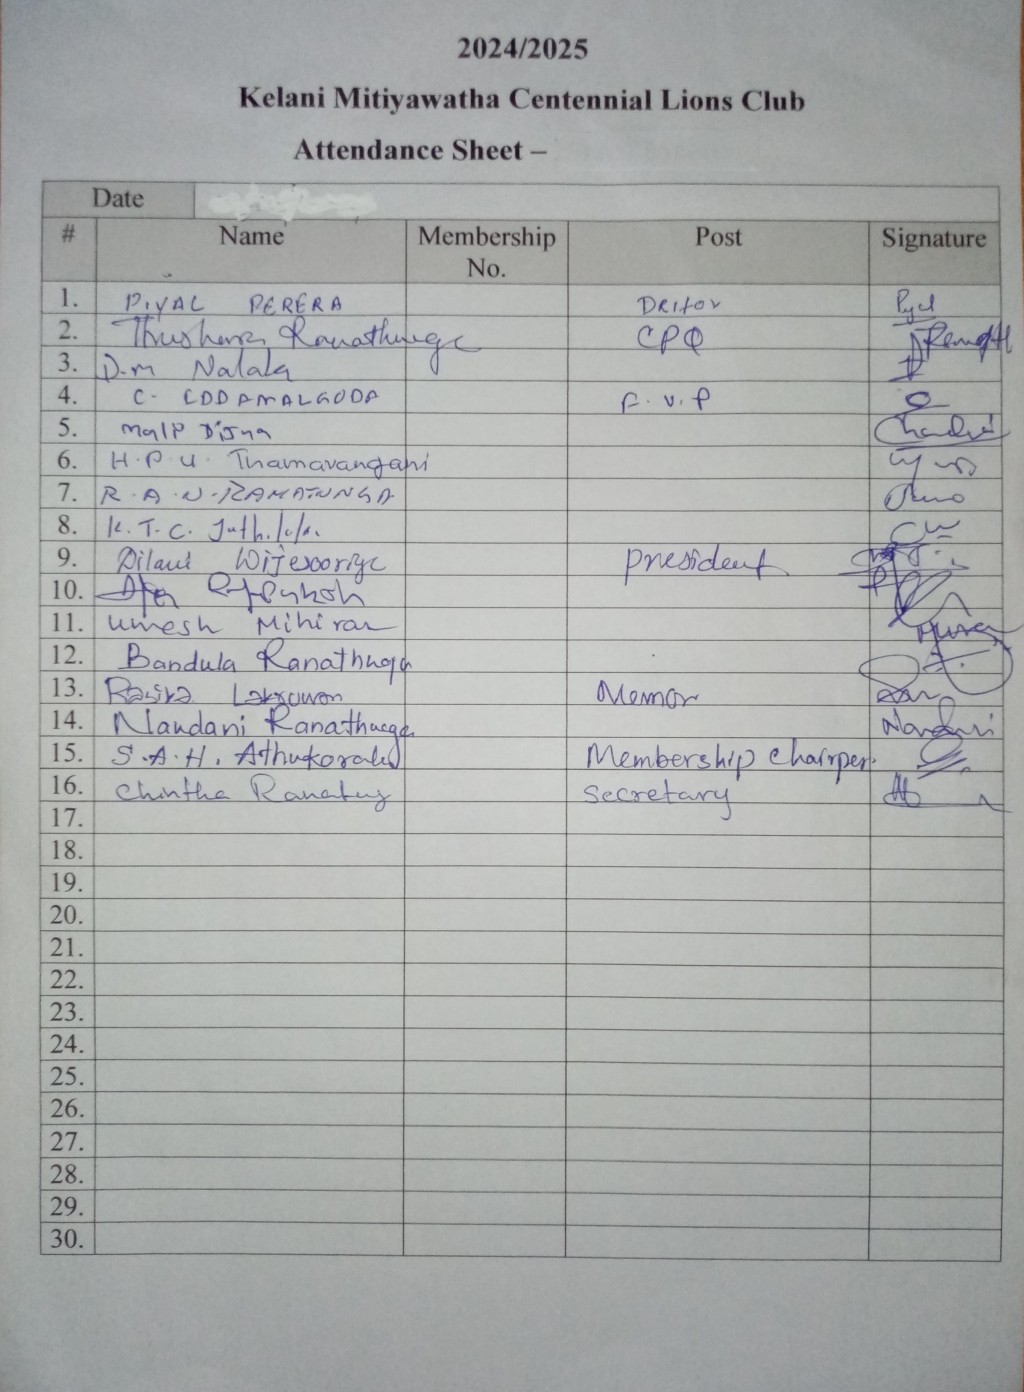 2024/2025
Kelani Mitiyawatha Centennial Lions Club
Attendance Sheet –
Date
# Name Membership No. Post Signature
1. PIYAL PERERA Piyal
2. Ranathunge CPQ
3. D.m Nalaka
4. C. EDDAMALGODA F.V.P
5.
6. H.P.U. Tharavangani
7. R.A.N.RAMATUNGA
8. K.T.C.
9. Dilani Wijesooriye president
10.
11. Umesh Mihiran
12. Bandula Ranathunga
13. Memor
14. Nandani Ranathunga Nandani
15. S.A.H. Athukorala Membership Chairper.
16. Chintha Ranatung Secretary
17.
18.
19.
20.
21.
22.
23.
24.
25.
26.
27.
28.
29.
30.